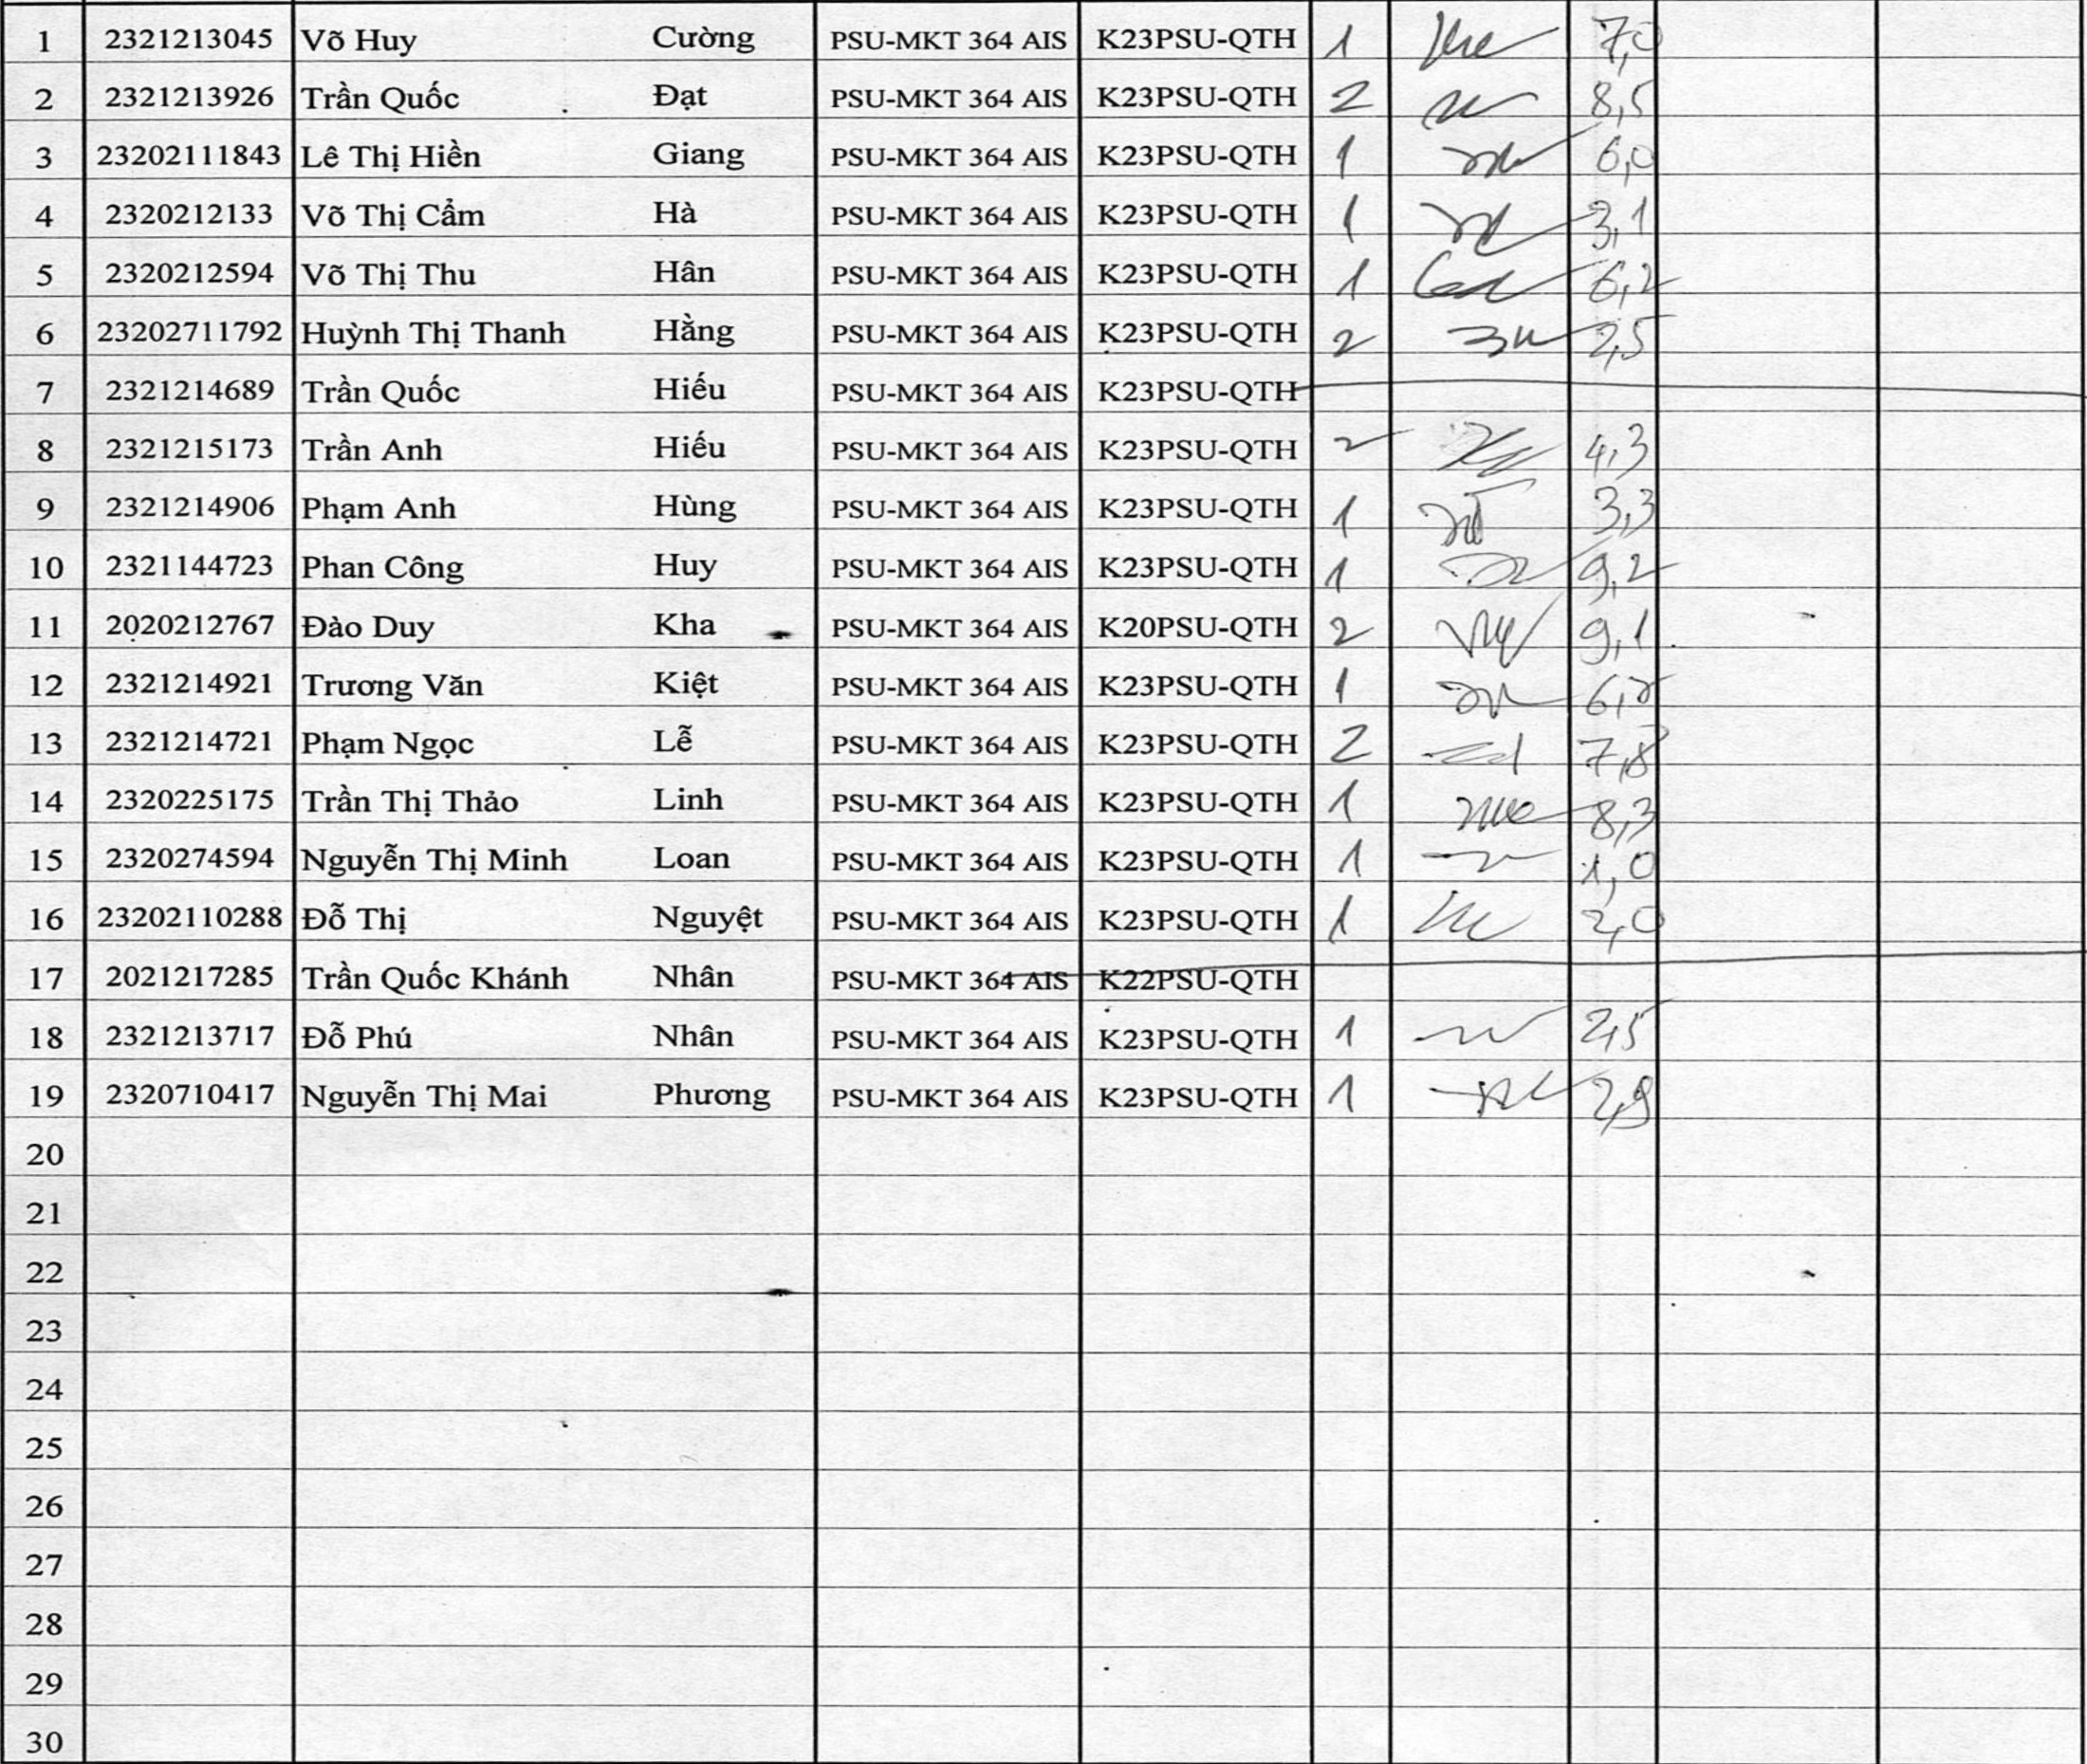 1 2321213045 Võ Huy Cường PSU-MKT 364 AIS K23PSU-QTH 1 7,0
2 2321213926 Trần Quốc Đạt PSU-MKT 364 AIS K23PSU-QTH 2 8,5
3 23202111843 Lê Thị Hiền Giang PSU-MKT 364 AIS K23PSU-QTH 1 6,0
4 2320212133 Võ Thị Cẩm Hà PSU-MKT 364 AIS K23PSU-QTH 1 3,1
5 2320212594 Võ Thị Thu Hân PSU-MKT 364 AIS K23PSU-QTH 1 6,2
6 23202711792 Huỳnh Thị Thanh Hằng PSU-MKT 364 AIS K23PSU-QTH 2 2,5
7 2321214689 Trần Quốc Hiếu PSU-MKT 364 AIS K23PSU-QTH
8 2321215173 Trần Anh Hiếu PSU-MKT 364 AIS K23PSU-QTH 2 4,3
9 2321214906 Phạm Anh Hùng PSU-MKT 364 AIS K23PSU-QTH 1 3,3
10 2321144723 Phan Công Huy PSU-MKT 364 AIS K23PSU-QTH 1 9,2
11 2020212767 Đào Duy Kha PSU-MKT 364 AIS K20PSU-QTH 2 9,1
12 2321214921 Trương Văn Kiệt PSU-MKT 364 AIS K23PSU-QTH 1
13 2321214721 Phạm Ngọc Lễ PSU-MKT 364 AIS K23PSU-QTH 2 7,8
14 2320225175 Trần Thị Thảo Linh PSU-MKT 364 AIS K23PSU-QTH 1 8,3
15 2320274594 Nguyễn Thị Minh Loan PSU-MKT 364 AIS K23PSU-QTH 1 1,0
16 23202110288 Đỗ Thị Nguyệt PSU-MKT 364 AIS K23PSU-QTH 1 2,0
17 2021217285 Trần Quốc Khánh Nhân PSU-MKT 364 AIS K22PSU-QTH
18 2321213717 Đỗ Phú Nhân PSU-MKT 364 AIS K23PSU-QTH 1 2,5
19 2320710417 Nguyễn Thị Mai Phương PSU-MKT 364 AIS K23PSU-QTH 1 2,9
20
21
22
23
24
25
26
27
28
29
30